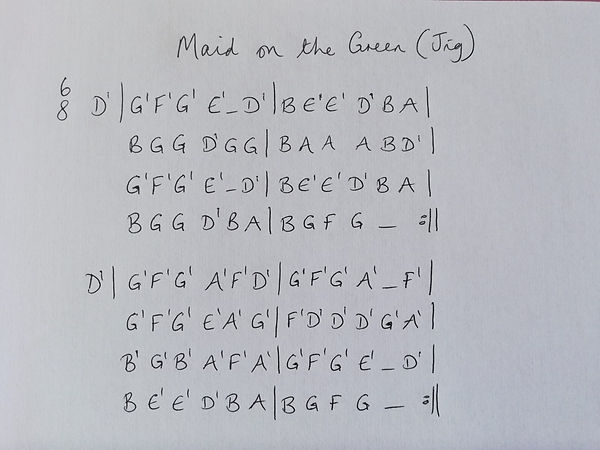 Maid on the Green (Jig)
6
8 D' | G'F'G' E'_D' | B E'E' D'B A |
B G G D'G G | B A A A B D' |
G'F'G' E'_D' | B E'E' D'B A |
B G G D'B A | B G F G _ :||
D' | G'F'G' A'F'D' | G'F'G' A'_F' |
G'F'G' E'A'G' | F'D'D' D'G'A' |
B'G'B' A'F'A' | G'F'G' E'_D' |
B E'E' D'B A | B G F G _ :||